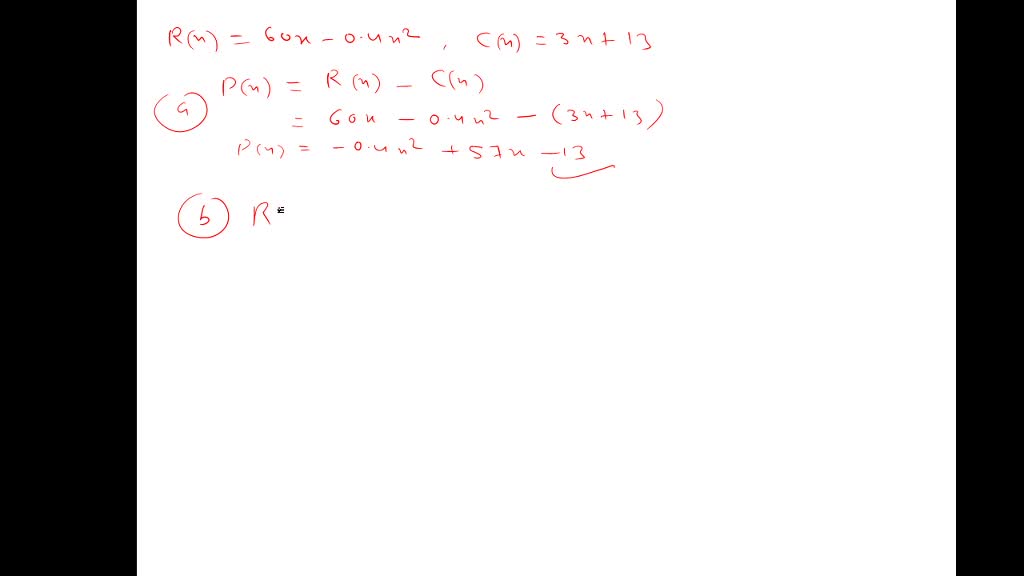 R(x) = 60x - 0.4x², C(x) = 3x + 13
(a) P(x) = R(x) - C(x)
= 60x - 0.4x² - (3x + 13)
P(x) = -0.4x² + 57x - 13
(b) R